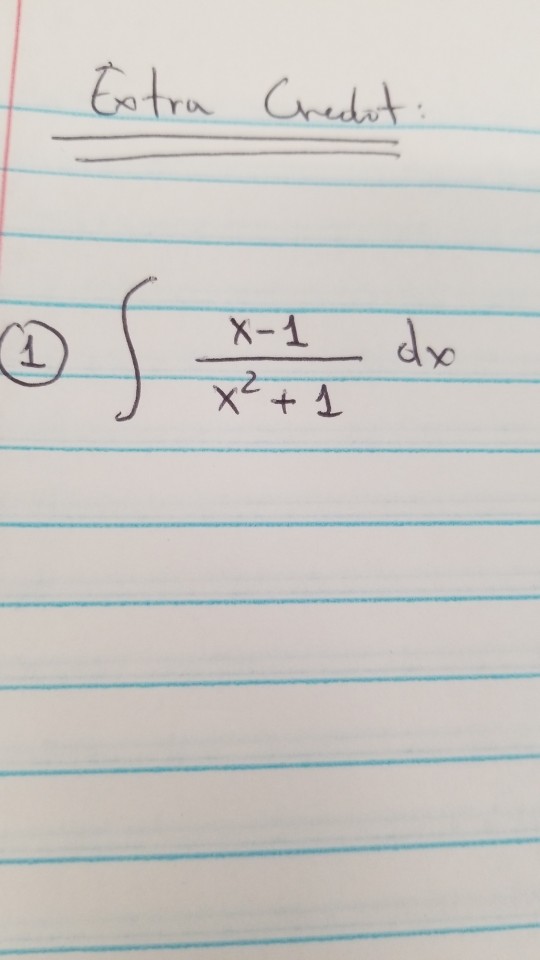 Extra Credit:
① ∫ x-1 / x² + 1 dx